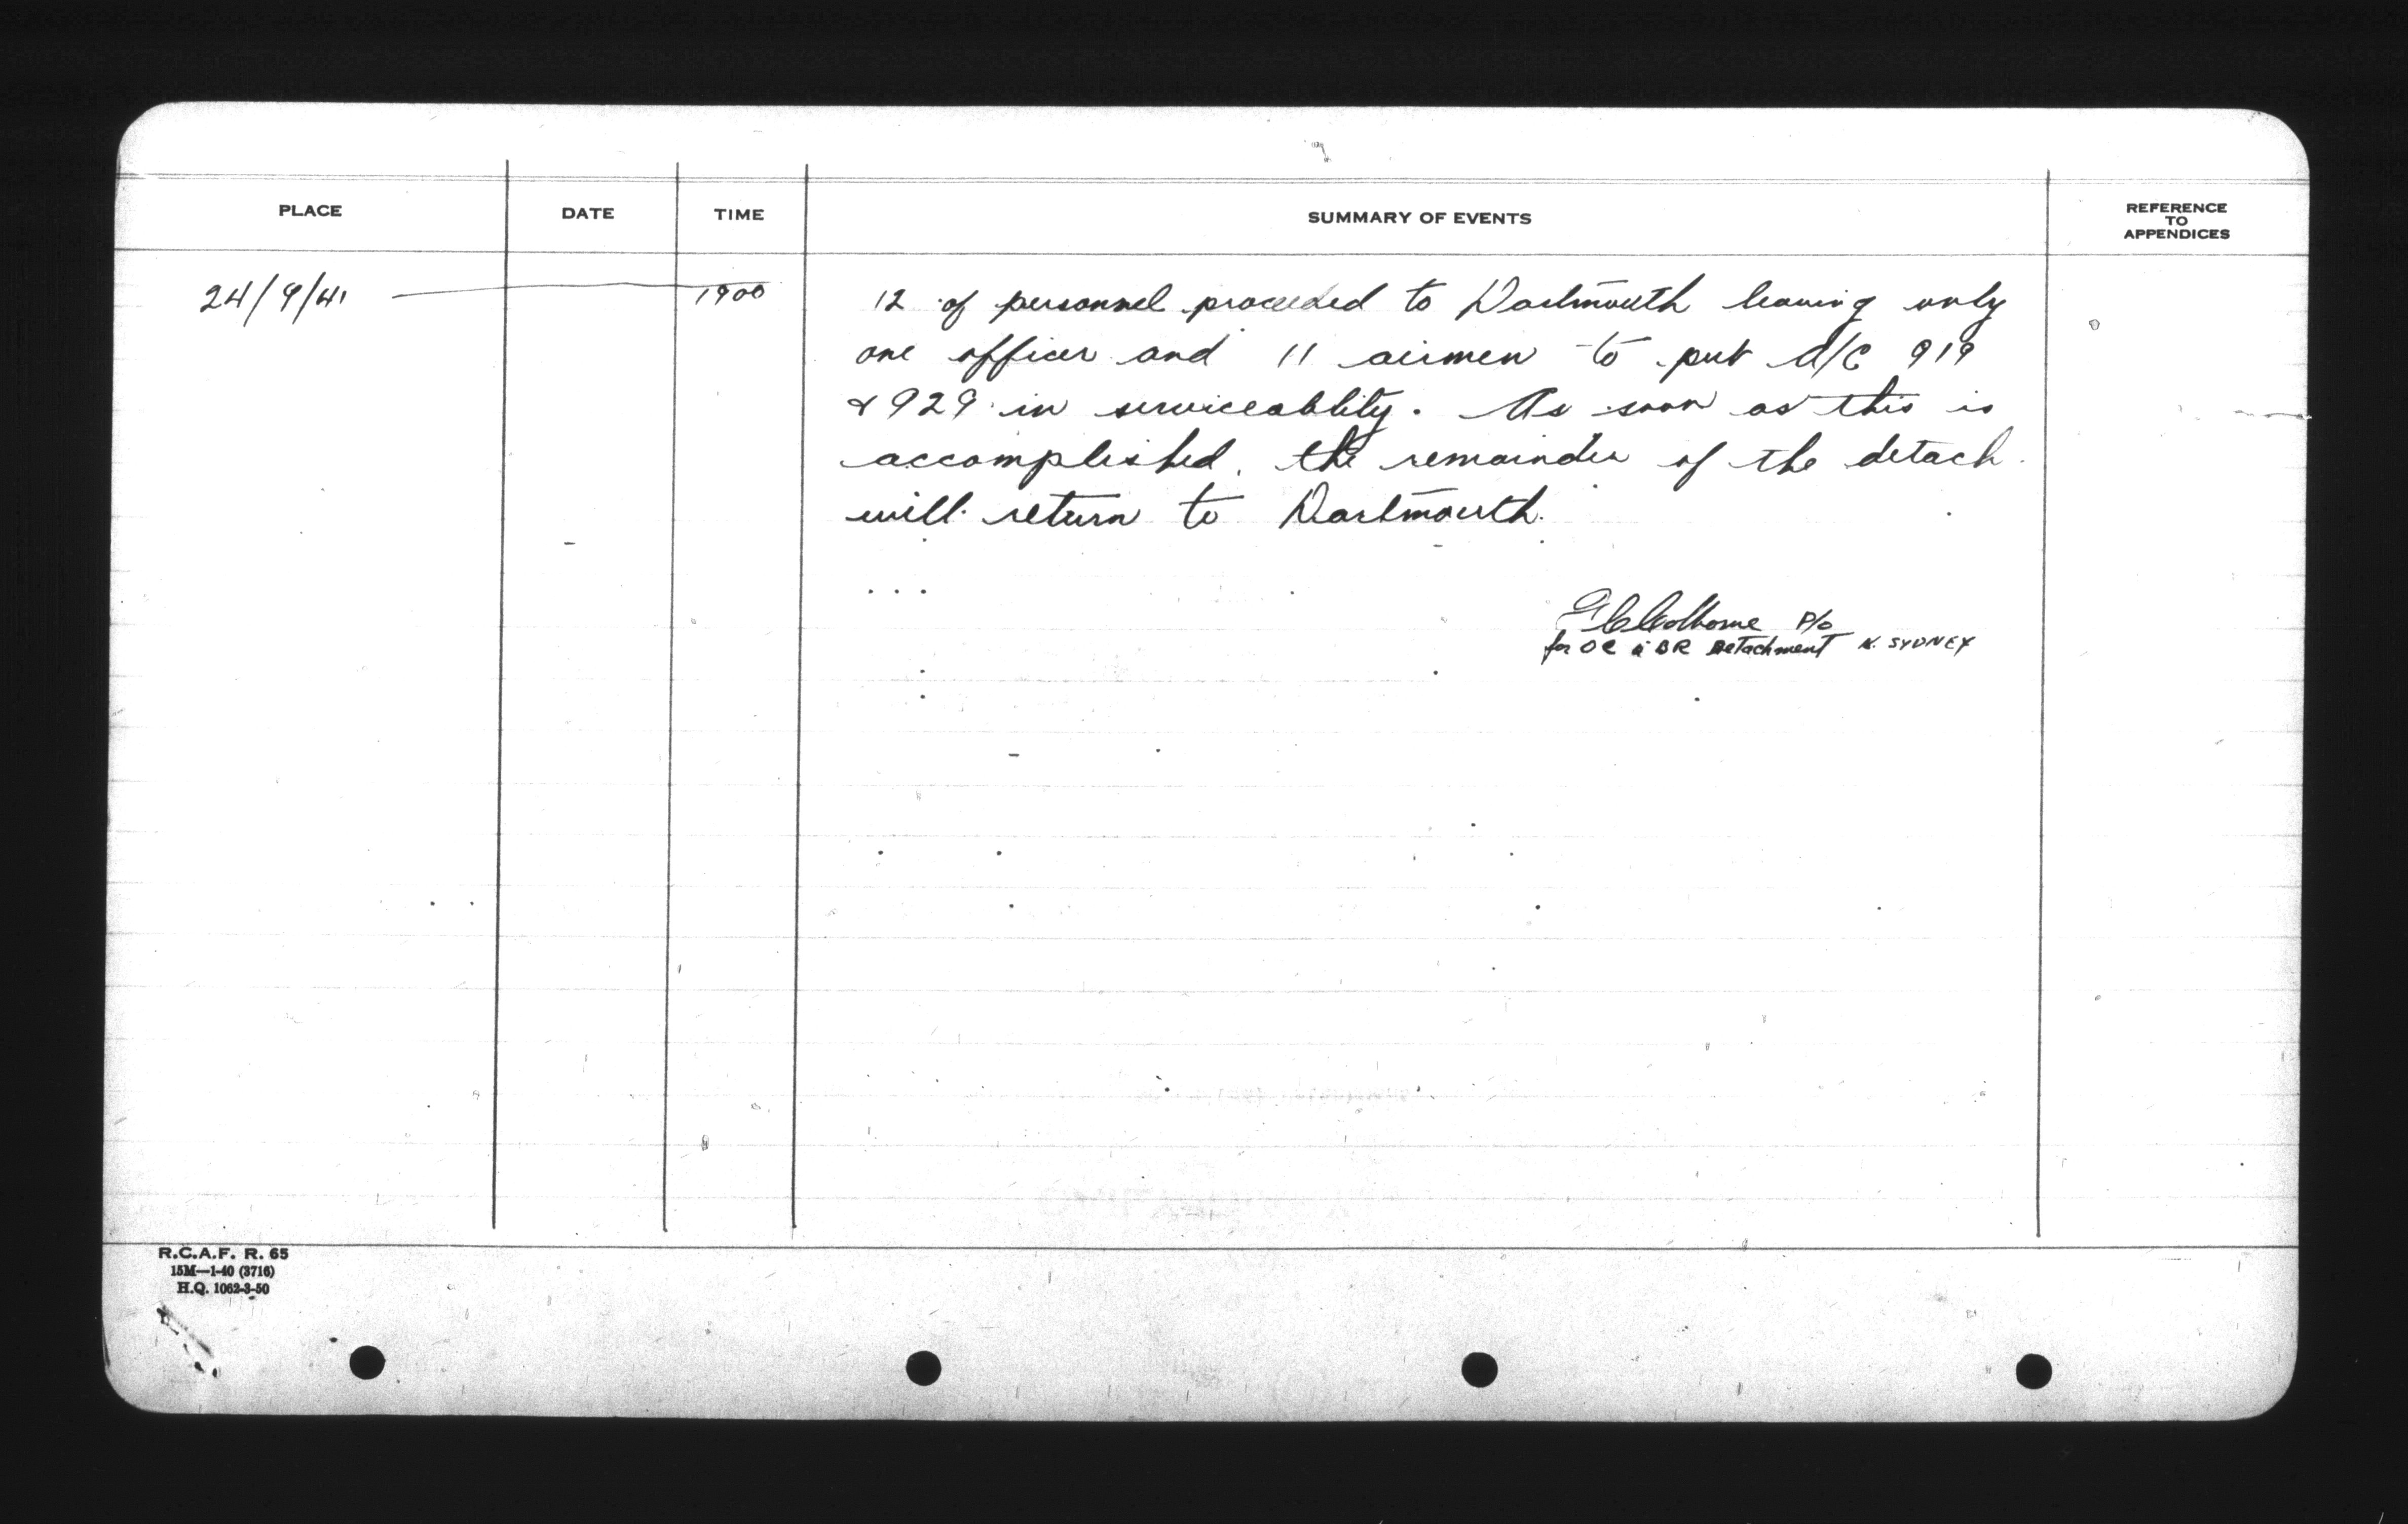 PLACE DATE TIME SUMMARY OF EVENTS REFERENCE TO APPENDICES
24/9/41 1900 12 of personnel proceeded to Dartmouth leaving only
one officer and 11 airmen to put A/C 919
& 929 in serviceablity. As soon as this is
accomplished, the remainder of the detach.
will return to Dartmouth.
Colborne P/O
for OC BR Detachment N. SYDNEY
R.C.A.F. R. 65
15M—1-40 (3716)
H.Q. 1062-3-50